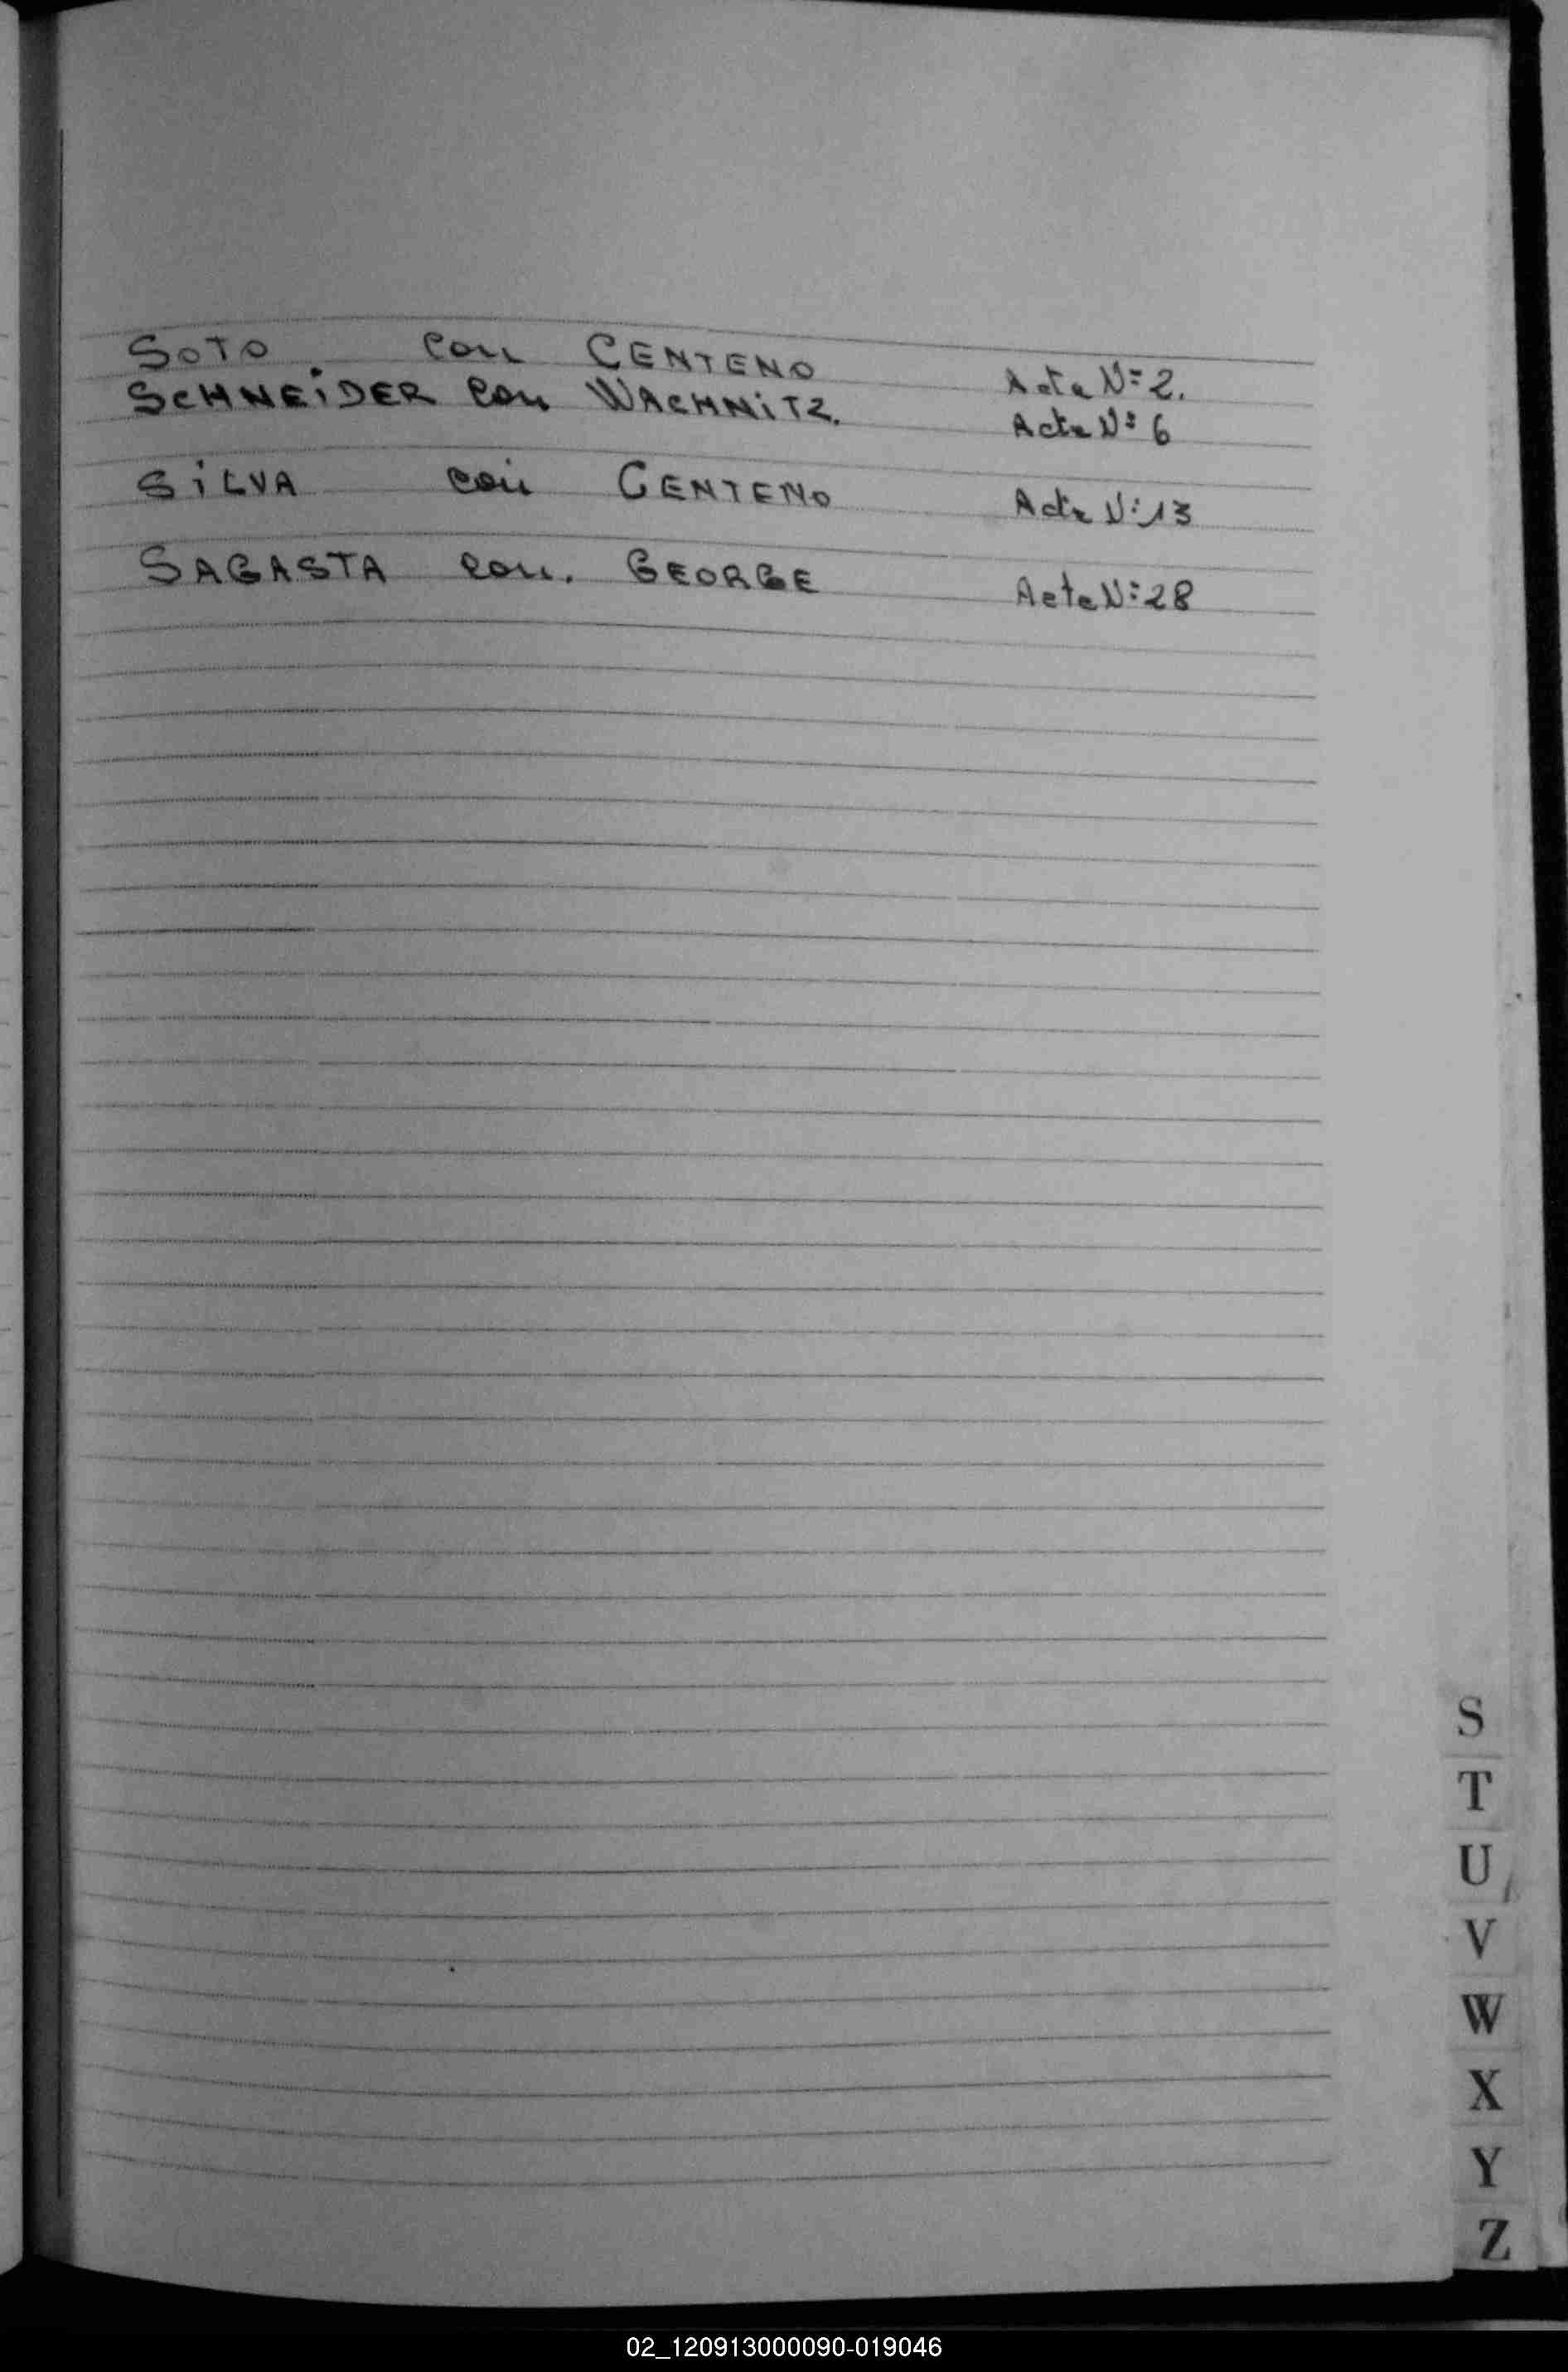 SOTO con CENTENO Acta Nº 2.
SCHNEIDER con WACHNITZ. Acta Nº 6
SILVA con CENTENO Acta Nº 13
SAGASTA con. GEORGE Acta Nº 28
S
T
U
V
W
X
Y
Z
02_120913000090-019046